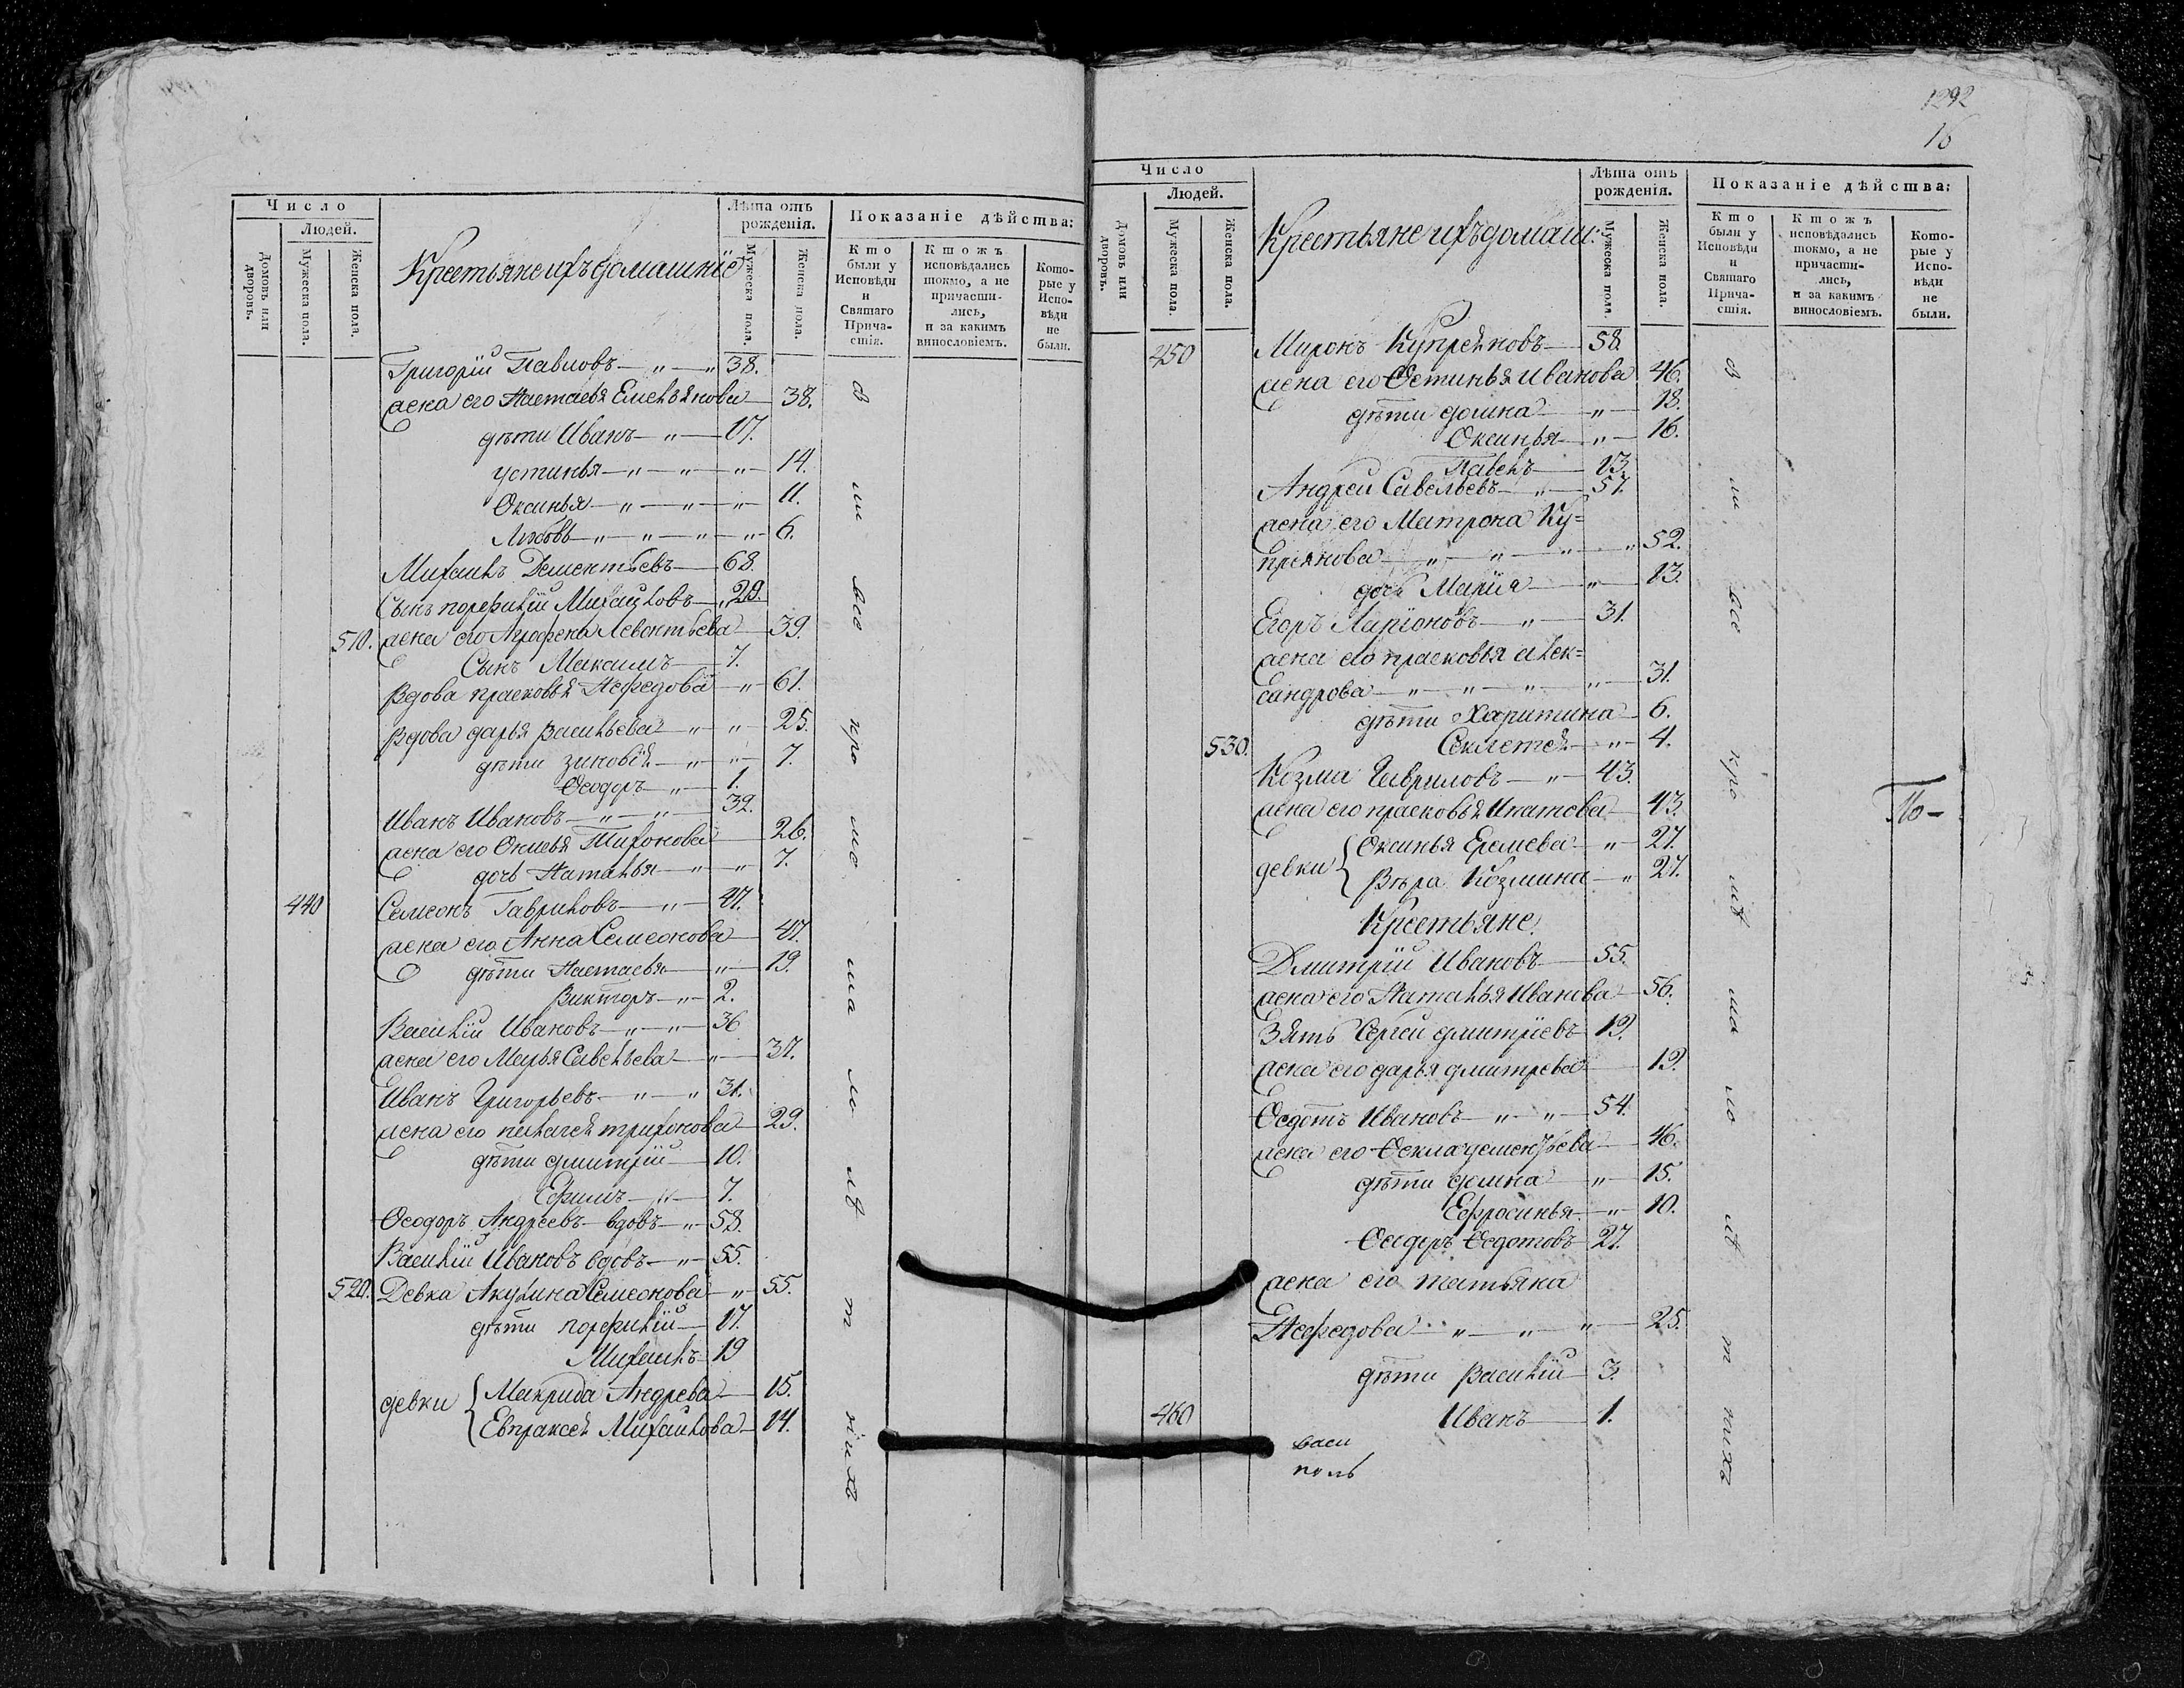 Число
Людей.
Домовъ или дворовъ.
Мужеска пола.
Женска пола.
Крестьяне ихъ домашніе
Лѣта отъ рожденія.
Мужеска пола.
Женска пола.
Показаніе дѣйства:
Кто были у Исповѣди и Святаго Прича-стія.
Ктожъ исповѣдались токмо, а не причасти-лись, и за какимъ винословіемъ.
Кото-рые у Испо-вѣди не были.
Григорій Павловъ 38.
жена его Настасья Емельянова 38.
дѣти Иванъ 17.
устинья 14.
Оксинья 11.
Любовь 6.
Михаилъ Дементьевъ 68.
Сынъ порфилій Михайловъ 29.
510. жена его Агрофена Левонтьева 39.
Сынъ Максимъ 7.
Вдова прасковья Нефедова 61.
Вдова дарья Васильева 25.
дѣти зиновія 7.
Ѳеодоръ 1.
Иванъ Ивановъ 32.
жена его Тихонова 26.
дочь Наталья 7.
440 Семеонъ Гавриловъ 47.
жена его Анна Семеонова 47.
дѣти Настасья 19.
Викторъ 2.
Василій Ивановъ 36
жена его Марья Савельева 37.
Иванъ Григорьевъ 31.
жена его пелагея трифонова 29.
дѣти дмитрій 10.
Ефимъ 7.
Ѳеодоръ Андреевъ вдовъ 58.
Василій Ивановъ вдовъ 55.
520. Девка Акулина Семеонова 55.
дѣти порфилій 17.
Михаилъ 19
девки { Макрида Андрева 15.
Евпраксея Михаилова 14.
1292
16
Число
Людей.
Домовъ или дворовъ.
Мужеска пола.
Женска пола.
Крестьяне ихъ домаш:
Лѣта отъ рожденія.
Мужеска пола.
Женска пола.
Показаніе дѣйства:
Кто были у Исповѣди и Святаго Прича-стія.
Ктожъ исповѣдались токмо, а не причасти-лись, и за какимъ винословіемъ.
Кото-рые у Испо-вѣди не были.
450 Миронъ Купреяновъ 58.
жена его Ѳетинья Иванова 46.
дѣти домна 18.
Оксинья 16.
Павелъ 13.
Андрей Савельевъ 57.
жена его Матрона Ку=
преянова 52.
дочь Марія 13.
Егоръ Ларіоновъ 31.
жена его прасковья алек=
сандрова 31.
дѣти Харитина 6.
530. Секлетея 4.
Козма Гавриловъ 43.
жена его прасковья Игнатова 43.
девки { Оксинья Еремева 27.
Вѣра Козмина 27.
Крестьяне.
Дмитрій Ивановъ 55.
жена его Наталья Иванова 56.
Зять Сергей дмитріевъ 19.
жена его дарья дмитрева 19.
Ѳедотъ Ивановъ 54.
жена его Ѳекла дементьева 46.
дѣти домна 15.
Ефросинья 10.
Ѳедоръ Ѳедотовъ 27.
жена его татьяна
Нефедова 25.
дѣти Василій 3.
460 Иванъ 1.
По-
васи
поль